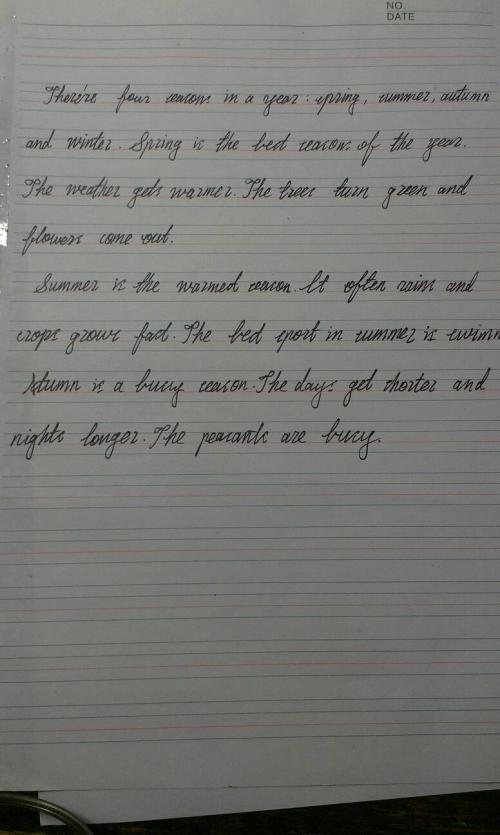 NO.
DATE
There're four seasons in a year: spring, summer, autumn
and winter. Spring is the best seasons of the year.
The weather gets warmer. The trees turn green and
flowers come out.
Summer is the warmest season. It often rains and
crops grows fast. The best sport in summer is swimm
Autumn is a busy season. The days get shorter and
nights longer. The peasants are busy.